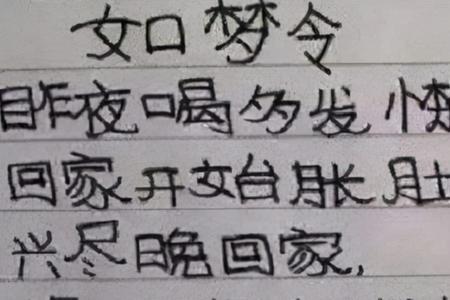 如梦令
昨夜喝多发
回家开始胀肚
兴尽晚回家,